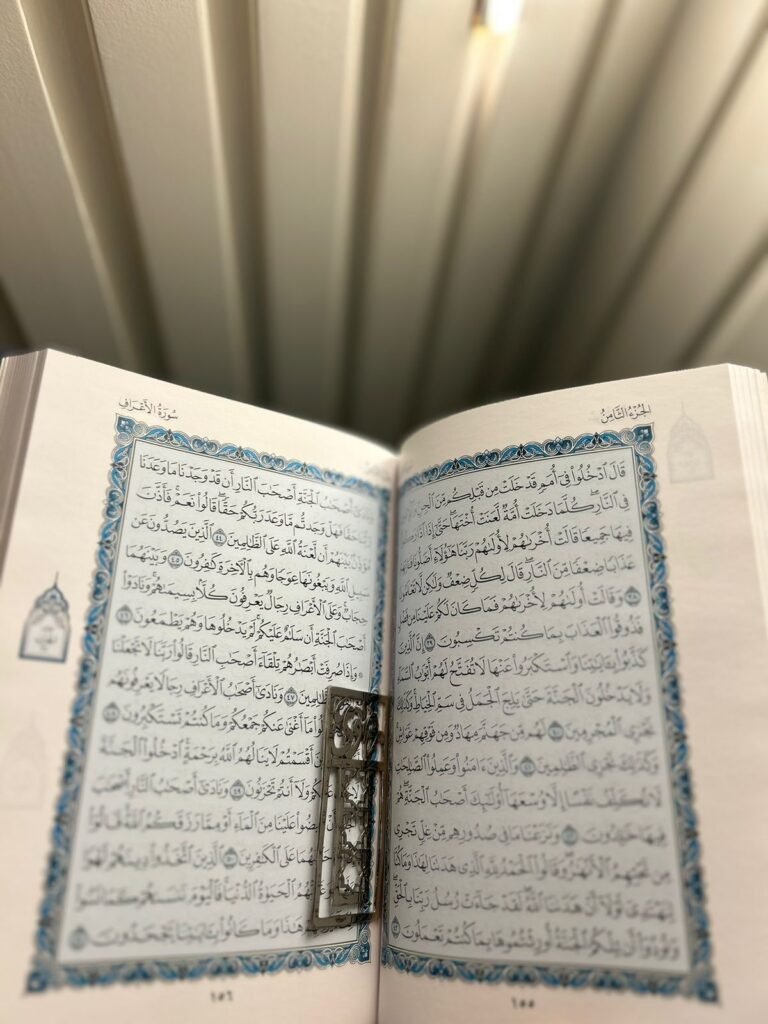 الجُزْءُ الثَّامِنُ
قَالَ ٱدْخُلُوا۟ فِىٓ أُمَمٍ قَدْ خَلَتْ مِن قَبْلِكُم مِّنَ ٱلْجِنِّ
فِى ٱلنَّارِ ۖ كُلَّمَا دَخَلَتْ أُمَّةٌ لَّعَنَتْ أُخْتَهَا ۖ حَتَّىٰٓ إِذَا ٱدَّارَكُوا۟
فِيهَا جَمِيعًا قَالَتْ أُخْرَىٰهُمْ لِأُولَىٰهُمْ رَبَّنَا هَٰٓؤُلَآءِ أَضَلُّونَا فَـَٔاتِهِمْ
عَذَابًا ضِعْفًا مِّنَ ٱلنَّارِ ۖ قَالَ لِكُلٍّ ضِعْفٌ وَلَٰكِن لَّا تَعْلَمُونَ
٣٨ وَقَالَتْ أُولَىٰهُمْ لِأُخْرَىٰهُمْ فَمَا كَانَ لَكُمْ عَلَيْنَا مِن فَضْلٍ
فَذُوقُوا۟ ٱلْعَذَابَ بِمَا كُنتُمْ تَكْسِبُونَ ٣٩ إِنَّ ٱلَّذِينَ
كَذَّبُوا۟ بِـَٔايَٰتِنَا وَٱسْتَكْبَرُوا۟ عَنْهَا لَا تُفَتَّحُ لَهُمْ أَبْوَٰبُ ٱلسَّمَآءِ
وَلَا يَدْخُلُونَ ٱلْجَنَّةَ حَتَّىٰ يَلِجَ ٱلْجَمَلُ فِى سَمِّ ٱلْخِيَاطِ ۚ وَكَذَٰلِكَ
نَجْزِى ٱلْمُجْرِمِينَ ٤٠ لَهُم مِّن جَهَنَّمَ مِهَادٌ وَمِن فَوْقِهِمْ غَوَاشٍ ۚ
وَكَذَٰلِكَ نَجْزِى ٱلظَّٰلِمِينَ ٤١ وَٱلَّذِينَ ءَامَنُوا۟ وَعَمِلُوا۟ ٱلصَّٰلِحَٰتِ
لَا نُكَلِّفُ نَفْسًا إِلَّا وُسْعَهَآ أُو۟لَٰٓئِكَ أَصْحَٰبُ ٱلْجَنَّةِ ۖ هُمْ
فِيهَا خَٰلِدُونَ ٤٢ وَنَزَعْنَا مَا فِى صُدُورِهِم مِّنْ غِلٍّ تَجْرِى
مِن تَحْتِهِمُ ٱلْأَنْهَٰرُ ۖ وَقَالُوا۟ ٱلْحَمْدُ لِلَّهِ ٱلَّذِى هَدَىٰنَا لِهَٰذَا وَمَا كُنَّا
لِنَهْتَدِىَ لَوْلَآ أَنْ هَدَىٰنَا ٱللَّهُ ۖ لَقَدْ جَآءَتْ رُسُلُ رَبِّنَا بِٱلْحَقِّ ۖ
وَنُودُوٓا۟ أَن تِلْكُمُ ٱلْجَنَّةُ أُورِثْتُمُوهَا بِمَا كُنتُمْ تَعْمَلُونَ ٤٣
١٥٥
سُورَةُ الأَعْرَافِ
أَصْحَٰبُ ٱلْجَنَّةِ أَصْحَٰبَ ٱلنَّارِ أَن قَدْ وَجَدْنَا مَا وَعَدَنَا
حَقًّا فَهَلْ وَجَدتُّم مَّا وَعَدَ رَبُّكُمْ حَقًّا ۖ قَالُوا۟ نَعَمْ ۚ فَأَذَّنَ
مُؤَذِّنٌۢ بَيْنَهُمْ أَن لَّعْنَةُ ٱللَّهِ عَلَى ٱلظَّٰلِمِينَ ٤٤ ٱلَّذِينَ يَصُدُّونَ عَن
سَبِيلِ ٱللَّهِ وَيَبْغُونَهَا عِوَجًا وَهُم بِٱلْـَٔاخِرَةِ كَٰفِرُونَ ٤٥ وَبَيْنَهُمَا
حِجَابٌ ۚ وَعَلَى ٱلْأَعْرَافِ رِجَالٌ يَعْرِفُونَ كُلًّۢا بِسِيمَىٰهُمْ ۚ وَنَادَوْا۟
أَصْحَٰبَ ٱلْجَنَّةِ أَن سَلَٰمٌ عَلَيْكُمْ ۚ لَمْ يَدْخُلُوهَا وَهُمْ يَطْمَعُونَ ٤٦
۞ وَإِذَا صُرِفَتْ أَبْصَٰرُهُمْ تِلْقَآءَ أَصْحَٰبِ ٱلنَّارِ قَالُوا۟ رَبَّنَا لَا تَجْعَلْنَا
ٱلظَّٰلِمِينَ ٤٧ وَنَادَىٰٓ أَصْحَٰبُ ٱلْأَعْرَافِ رِجَالًا يَعْرِفُونَهُم
مَآ أَغْنَىٰ عَنكُمْ جَمْعُكُمْ وَمَا كُنتُمْ تَسْتَكْبِرُونَ ٤٨
أَقْسَمْتُمْ لَا يَنَالُهُمُ ٱللَّهُ بِرَحْمَةٍ ۚ ٱدْخُلُوا۟ ٱلْجَنَّةَ
عَلَيْكُمْ وَلَآ أَنتُمْ تَحْزَنُونَ ٤٩ وَنَادَىٰٓ أَصْحَٰبُ ٱلنَّارِ أَصْحَٰبَ
أَفِيضُوا۟ عَلَيْنَا مِنَ ٱلْمَآءِ أَوْ مِمَّا رَزَقَكُمُ ٱللَّهُ ۚ قَالُوٓا۟
حَرَّمَهُمَا عَلَى ٱلْكَٰفِرِينَ ٥٠ ٱلَّذِينَ ٱتَّخَذُوا۟ دِينَهُمْ لَهْوًا
ٱلْحَيَوٰةُ ٱلدُّنْيَا ۚ فَٱلْيَوْمَ نَنسَىٰهُمْ كَمَا نَسُوا۟
هَٰذَا وَمَا كَانُوا۟ بِـَٔايَٰتِنَا يَجْحَدُونَ ٥١
١٥٦